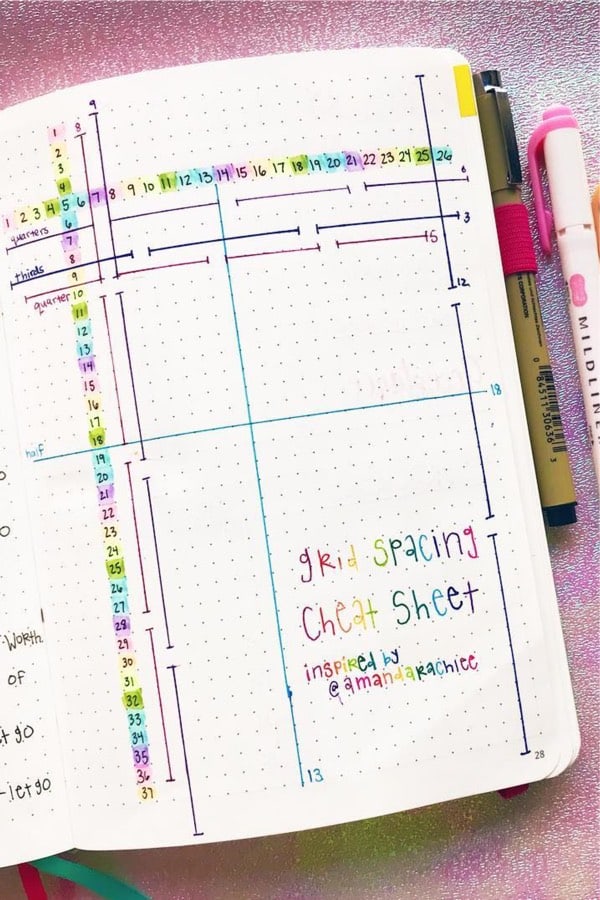 9
8
1
2
3
4
1 2 3 4 5 6 7 8 9 10 11 12 13 14 15 16 17 18 19 20 21 22 23 24 25 26
6
7
8
9
10
11
12
13
14
15
16
17
18
19
20
21
22
23
24
25
26
27
28
29
30
31
32
33
34
35
36
37
quarters
6
thirds
3
quarter
5
12
half
18
13
grid spacing
Cheat Sheet
inspired by
@amandarachlee
28
Worth
of
go
let go
MILDLINER
0 84511 30636 3